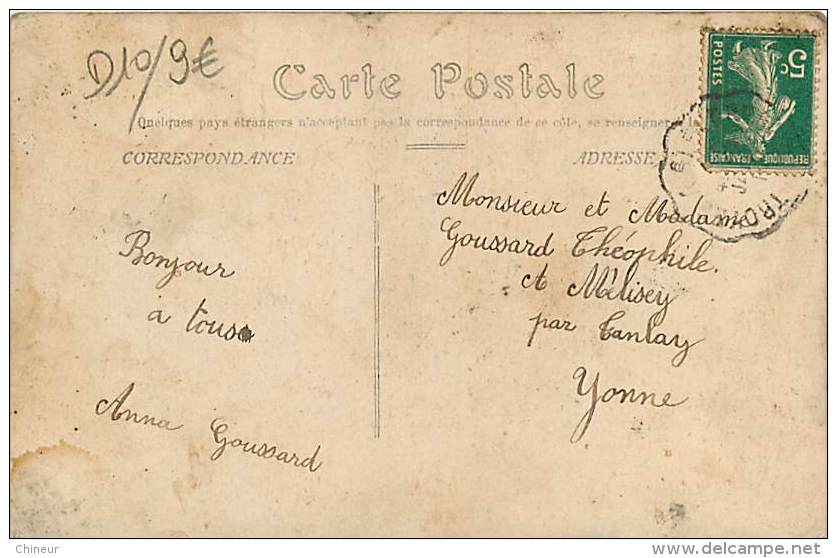 D10/9€
Carte Postale
Quelques pays étrangers n'acceptant pas la correspondance de ce côté, se renseigner à la
CORRESPONDANCE
ADRESSE
5c
POSTES
REPUBLIQUE FRANÇAISE
TRO
Monsieur et Madame
Goussard Théophile
à Mélisey
par Tanlay
Yonne
Bonjour
a tous
Anna Goussard
Chineur
www.delcampe.net